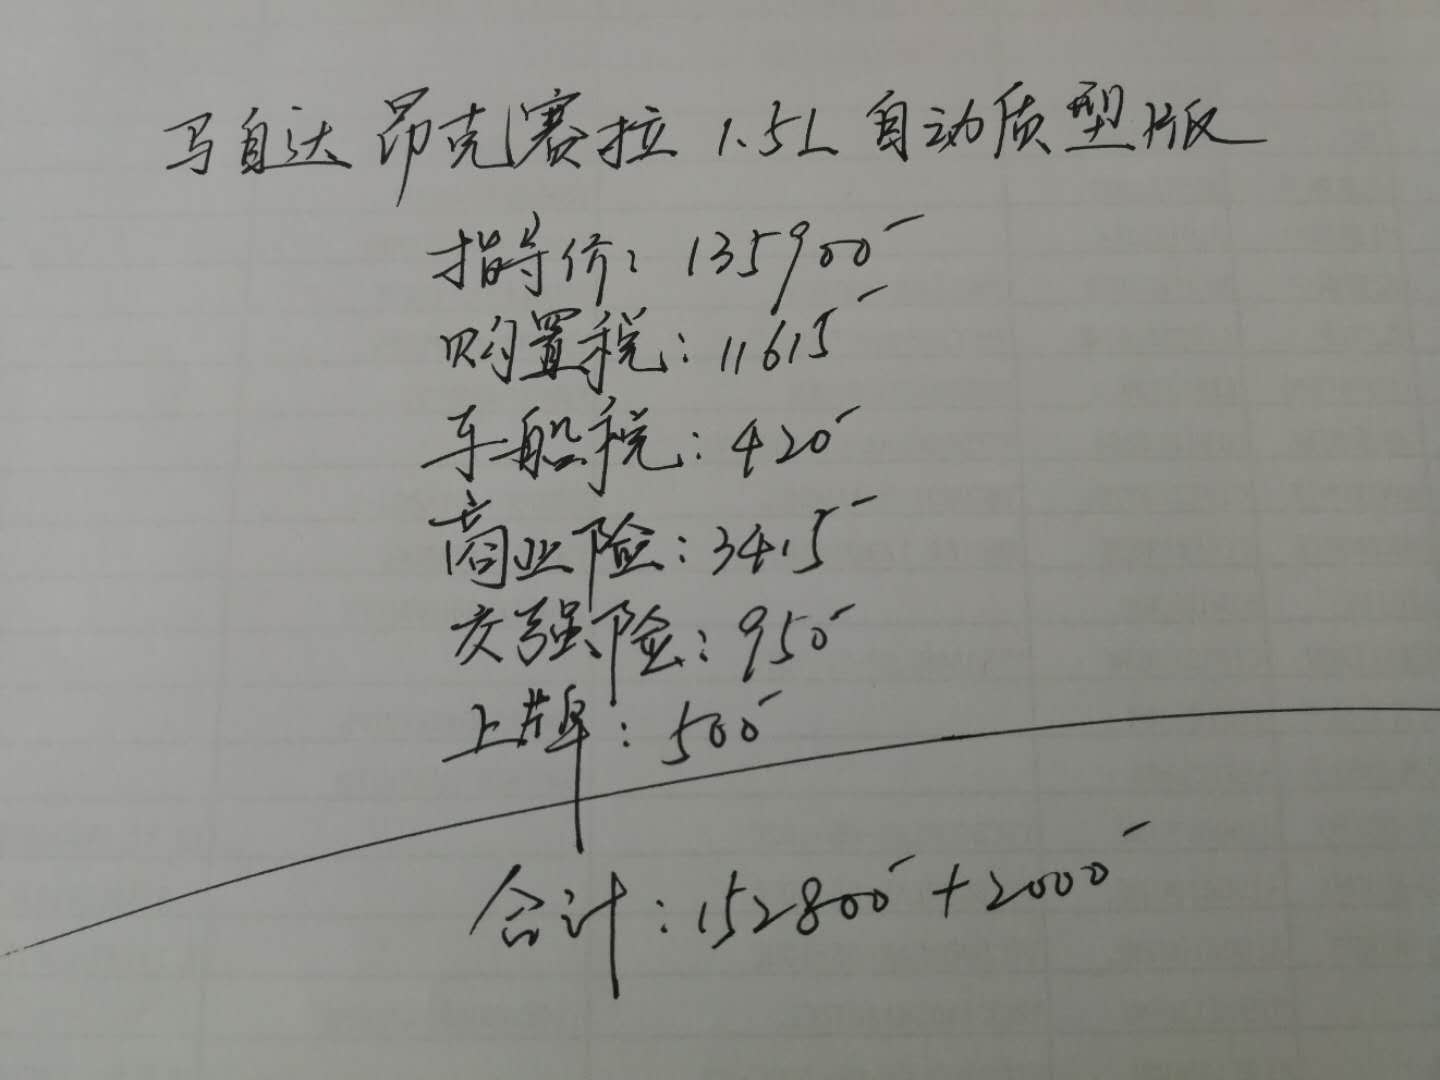 马自达 昂克赛拉 1.5L 自动质型版
指导价: 135900
购置税: 11615
车船税: 420
商业险: 3415
交强险: 950
上牌: 500
合计: 152800 + 2000